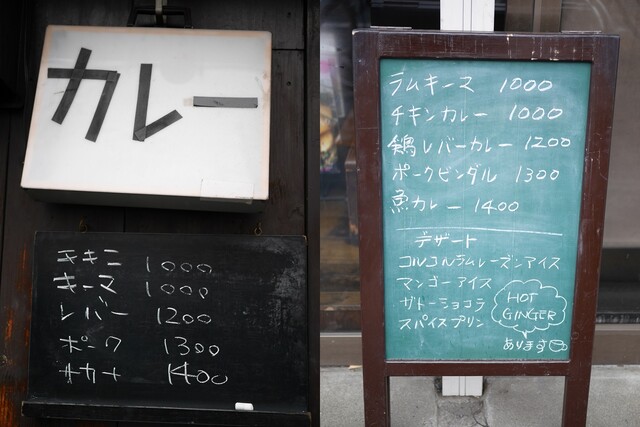 カレー
チキン 1000
キーマ 1000
レバー 1200
ポーク 1300
サカナ 1400
ラムキーマ 1000
チキンカレー 1000
鶏レバーカレー 1200
ポークビンダル 1300
魚カレー 1400
デザート
コルコルラムレーズンアイス
マンゴーアイス
ガトーショコラ
スパイスプリン
HOT
GINGER
あります